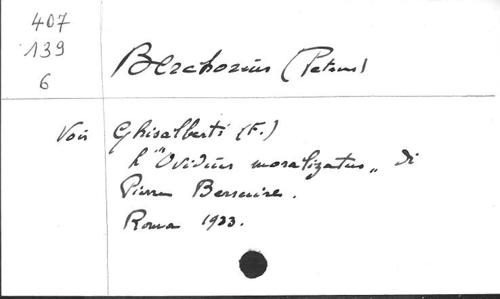 407
139
6
Berchorius (Petrus)
Voir Ghisalberti (F.)
L'"Ovidius moralizatus" di
Pierre Bersuire.
Roma 1933.